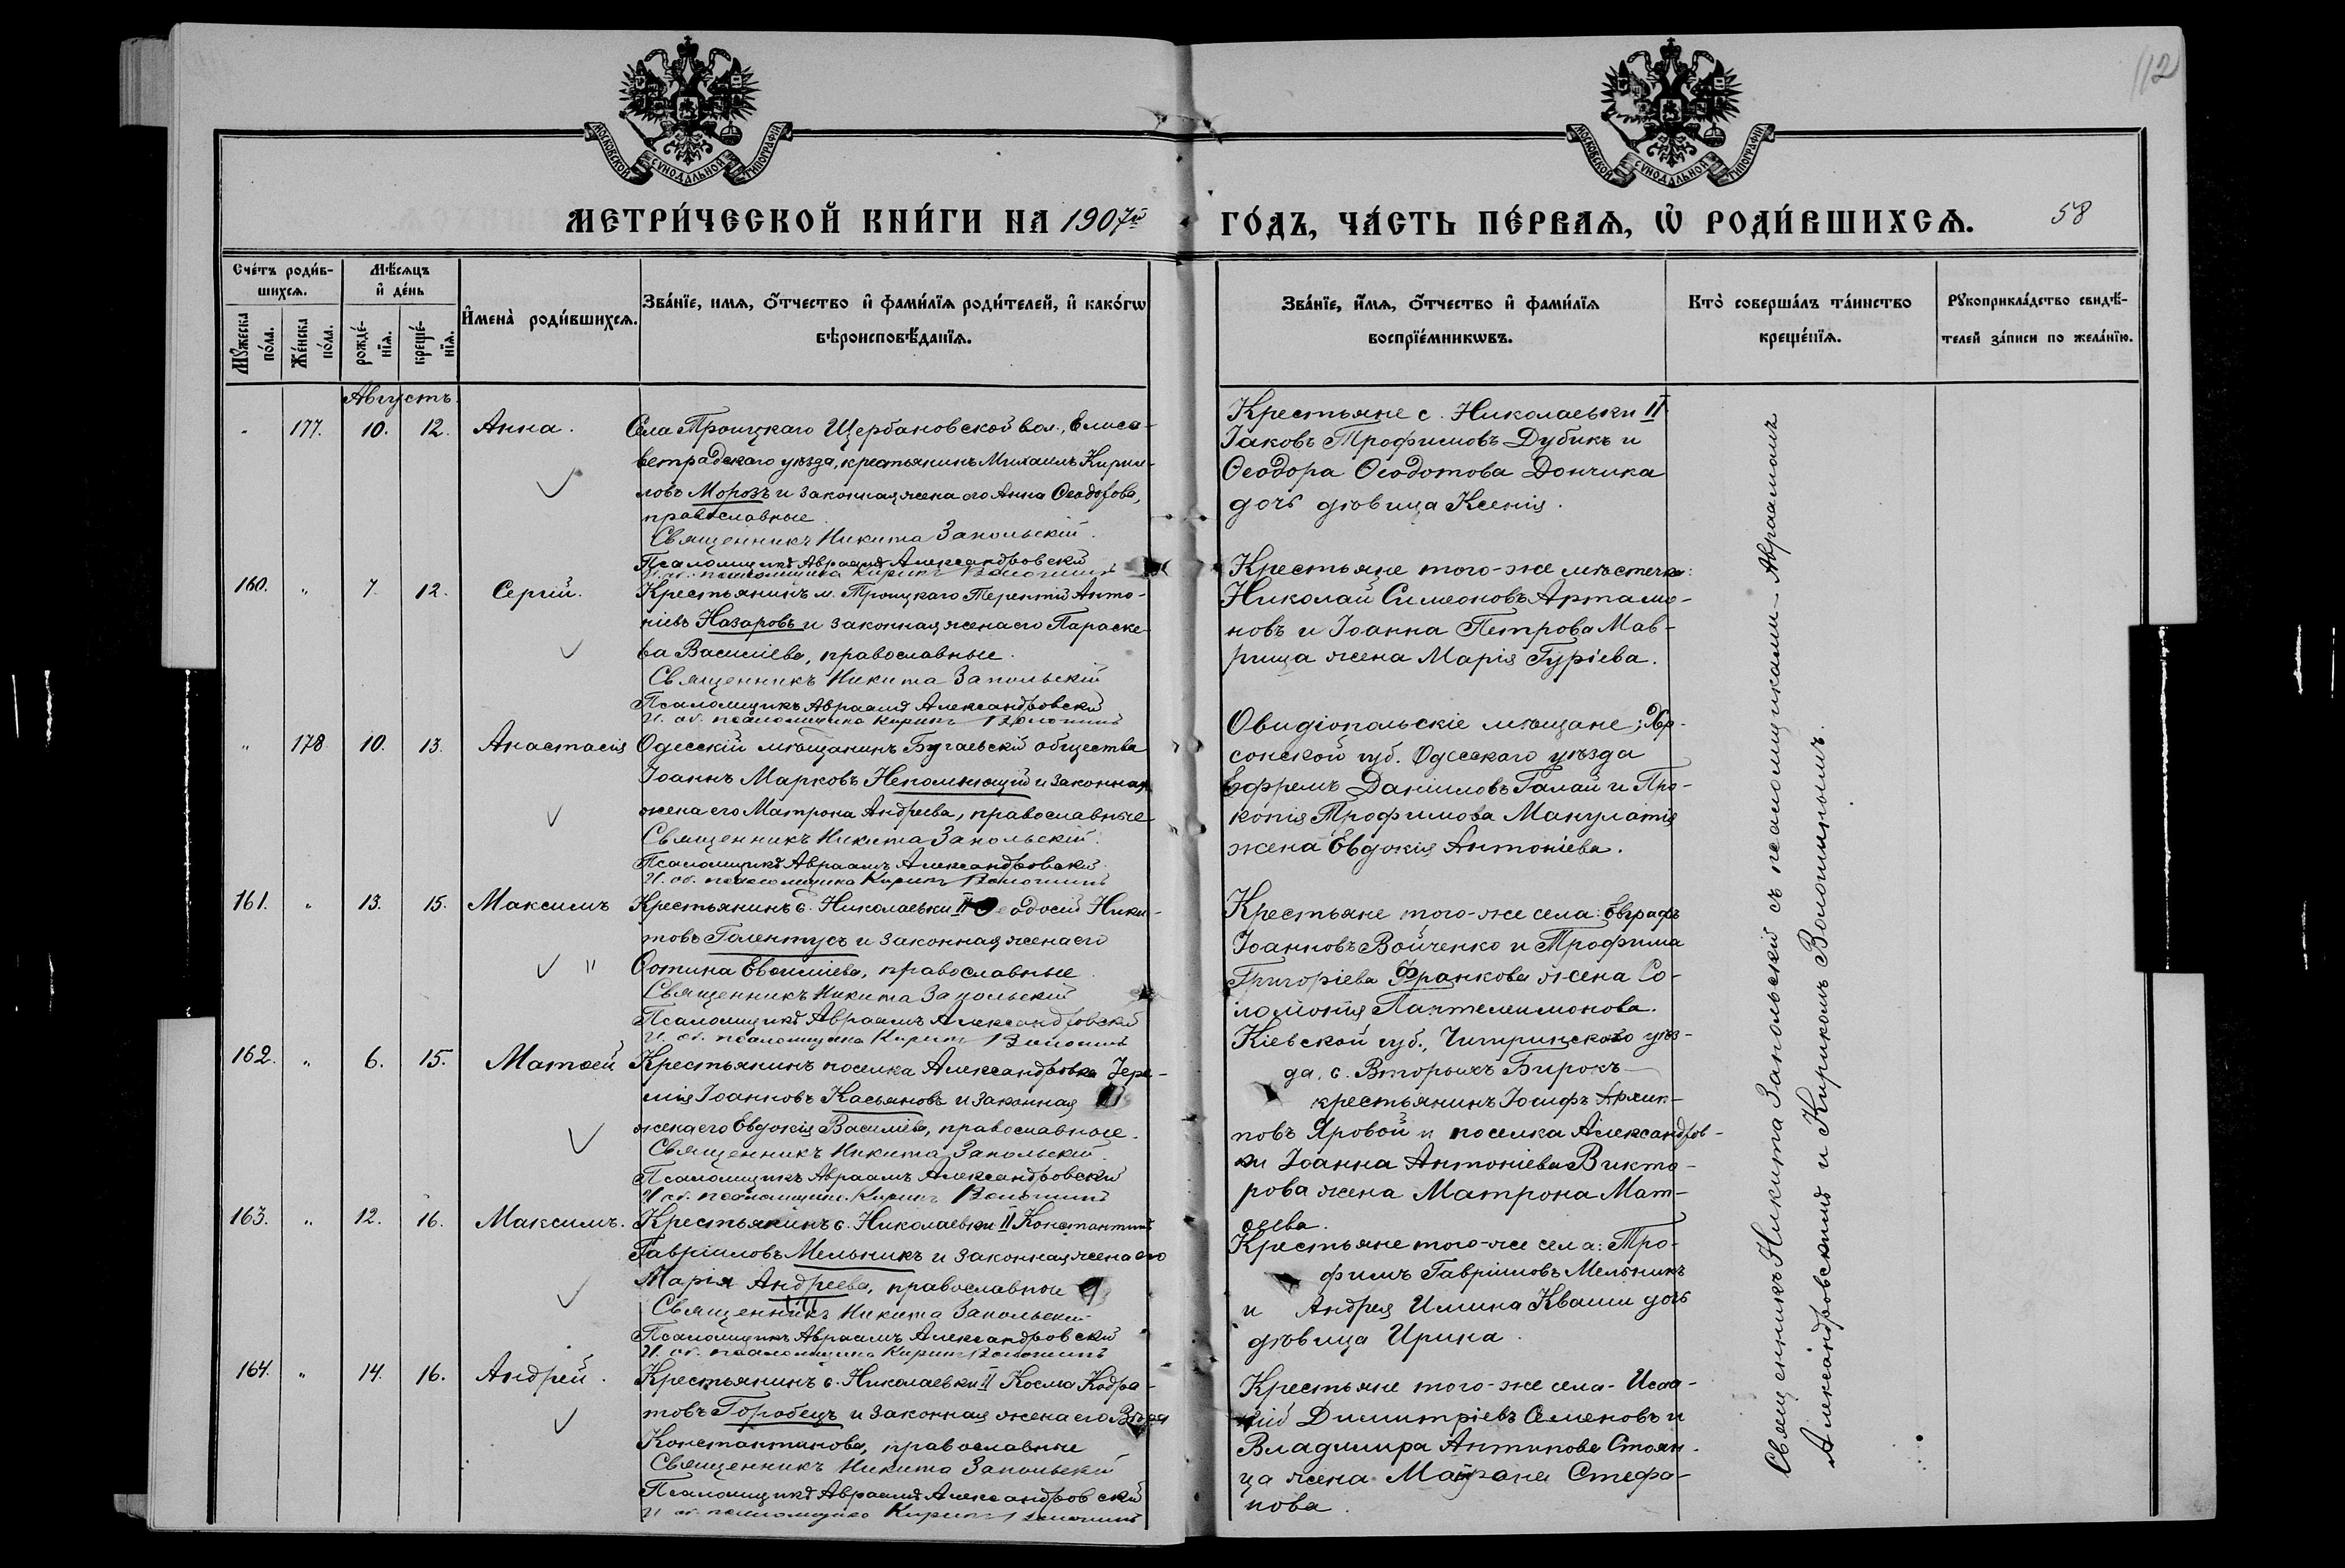 112
МОСКОВСКОЙ СѴНОДАЛЬНОЙ ТИПОГРАФІИ
МОСКОВСКОЙ СѴНОДАЛЬНОЙ ТИПОГРАФІИ
МЕТРИ́ЧЕСКОЙ КНИ́ГИ НА 1907й ГО́ДЪ, ЧА́СТЬ ПЕ́РВАѦ, Ѡ҆ РОДИ́ВШИХСѦ.
58
Сче́тъ роди́в-
шихсѧ.
Мꙋ́жеска по́ла.
Же́нска по́ла.
Мѣ́сѧцъ
и҆ де́нь
рожде́-
нїѧ.
креще́-
нїѧ.
И҆мена̀ роди́вшихсѧ.
Зва́нїе, имѧ, о҆́тчество и҆ фами́лїѧ роди́телей, и҆ како́гѡ
вѣроисповѣ́данїѧ.
Зва́нїе, и҆́мѧ, о҆́тчество и҆ фами́лїѧ
воспрїе́мникѡвъ.
Кто̀ соверша́лъ та́инство
креще́нїѧ.
Рꙋкоприкла́дство свидѣ́-
телей за́писи по жела́нїю.
Августъ.
- 177. 10. 12. Анна.
Села Троицкаго Щербановской вол., Елиса-
ветградскаго уѣзда, крестьянинъ Михаилъ Кирил-
ловъ Морозъ и законная жена его Анна Ѳеодорова,
православные
Священникъ Никита Запольскій.
Псаломщикъ Авраамъ Александровскій
И. об. псаломщика Кирикъ Волошинъ
Крестьяне с. Николаевки II
Іаковъ Трофимовъ Дубикъ и
Ѳеодора Ѳеодотова Дончика
дочь дѣвица Ксенія.
160. " 7. 12. Сергій.
Крестьянинъ м. Троицкаго Терентій Анто-
ніевъ Назаровъ и законная жена его Параске-
ва Василіева, православные.
Священникъ Никита Запольскій
Псаломщикъ Авраамъ Александровскій
И. об. псаломщика Кирикъ Волошинъ
Крестьяне того-же мѣстечка:
Николай Симеоновъ Артамо-
новъ и Іоанна Петрова Мав-
рица жена Марія Гуріева.
" 178 10. 13. Анастасія
Одесскій мѣщанинъ Бугаевскій общества
Іоаннъ Марковъ Непомнющій и законная
жена его Матрона Андреева, православные
Священникъ Никита Запольскій.
Псаломщикъ Авраамъ Александровскій
И. об. псаломщика Кирикъ Волошинъ
Овидіопольскіе мѣщане, Хер-
сонской губ. Одесскаго уѣзда
Ефремъ Даніиловъ Галай и Про-
копія Трофимова Манулатія
жена Евдокія Антоніева.
161. " 13. 15. Максимъ
Крестьянинъ с. Николаевки II Ѳеодосій Ники-
товъ Галентусъ и законная жена его
Фотина, православные.
Священникъ Никита Запольскій
Псаломщикъ Авраамъ Александровскій
И. об. псаломщика Кирикъ Волошинъ
Крестьяне того-же села: Евграфъ
Іоанновъ Войченко и Трофима
Григоріева Франкова жена Со-
ломонія Пантелеимонова.
162. " 6. 15. Матѳей
Крестьянинъ поселка Александровка Іере-
мія Іоанновъ Касьяновъ и законная
жена его Евдокія Василіева, православные.
Священникъ Никита Запольскій.
Псаломщикъ Авраамъ Александровскій
И об. псаломщика Кирикъ Волошинъ
Кіевской губ., Чигиринскаго уѣз-
да, с. Вторыхъ Бирокъ
крестьянинъ Іосифъ Архип-
повъ Яровой и поселка Александров-
ки Іоанна Антоніева Викто-
рова жена Матрона Мат-
ѳеева.
163. " 12. 16. Максимъ.
Крестьянинъ с. Николаевки II Константинъ
Гавріиловъ Мельникъ и законная жена его
Марія Андреева, православные
Священникъ Никита Запольскій
Псаломщикъ Авраамъ Александровскій
И. об. псаломщика Кирикъ Волошинъ
Крестьяне того-же села: Тро-
фимъ Гавріиловъ Мельникъ
и Андрея Илина Кваши дочь
дѣвица Ирина.
164. " 14. 16. Андрей.
Крестьянинъ с. Николаевки II Косма Кодра-
товъ Горобецъ и законная жена его Вѣра
Константинова, православные
Священникъ Никита Запольскій
Псаломщикъ Авраамъ Александровскій
И об. псаломщика Кирикъ Волошинъ
Крестьяне того-же села - Исаа-
кій Димитріевъ Семеновъ и
Владимира Антипова Стоян-
ца жена Стефа-
нова.
Священникъ Никита Запольскій съ псаломщиками - Авраамомъ
Александровскимъ и Кирикомъ Волошинымъ.